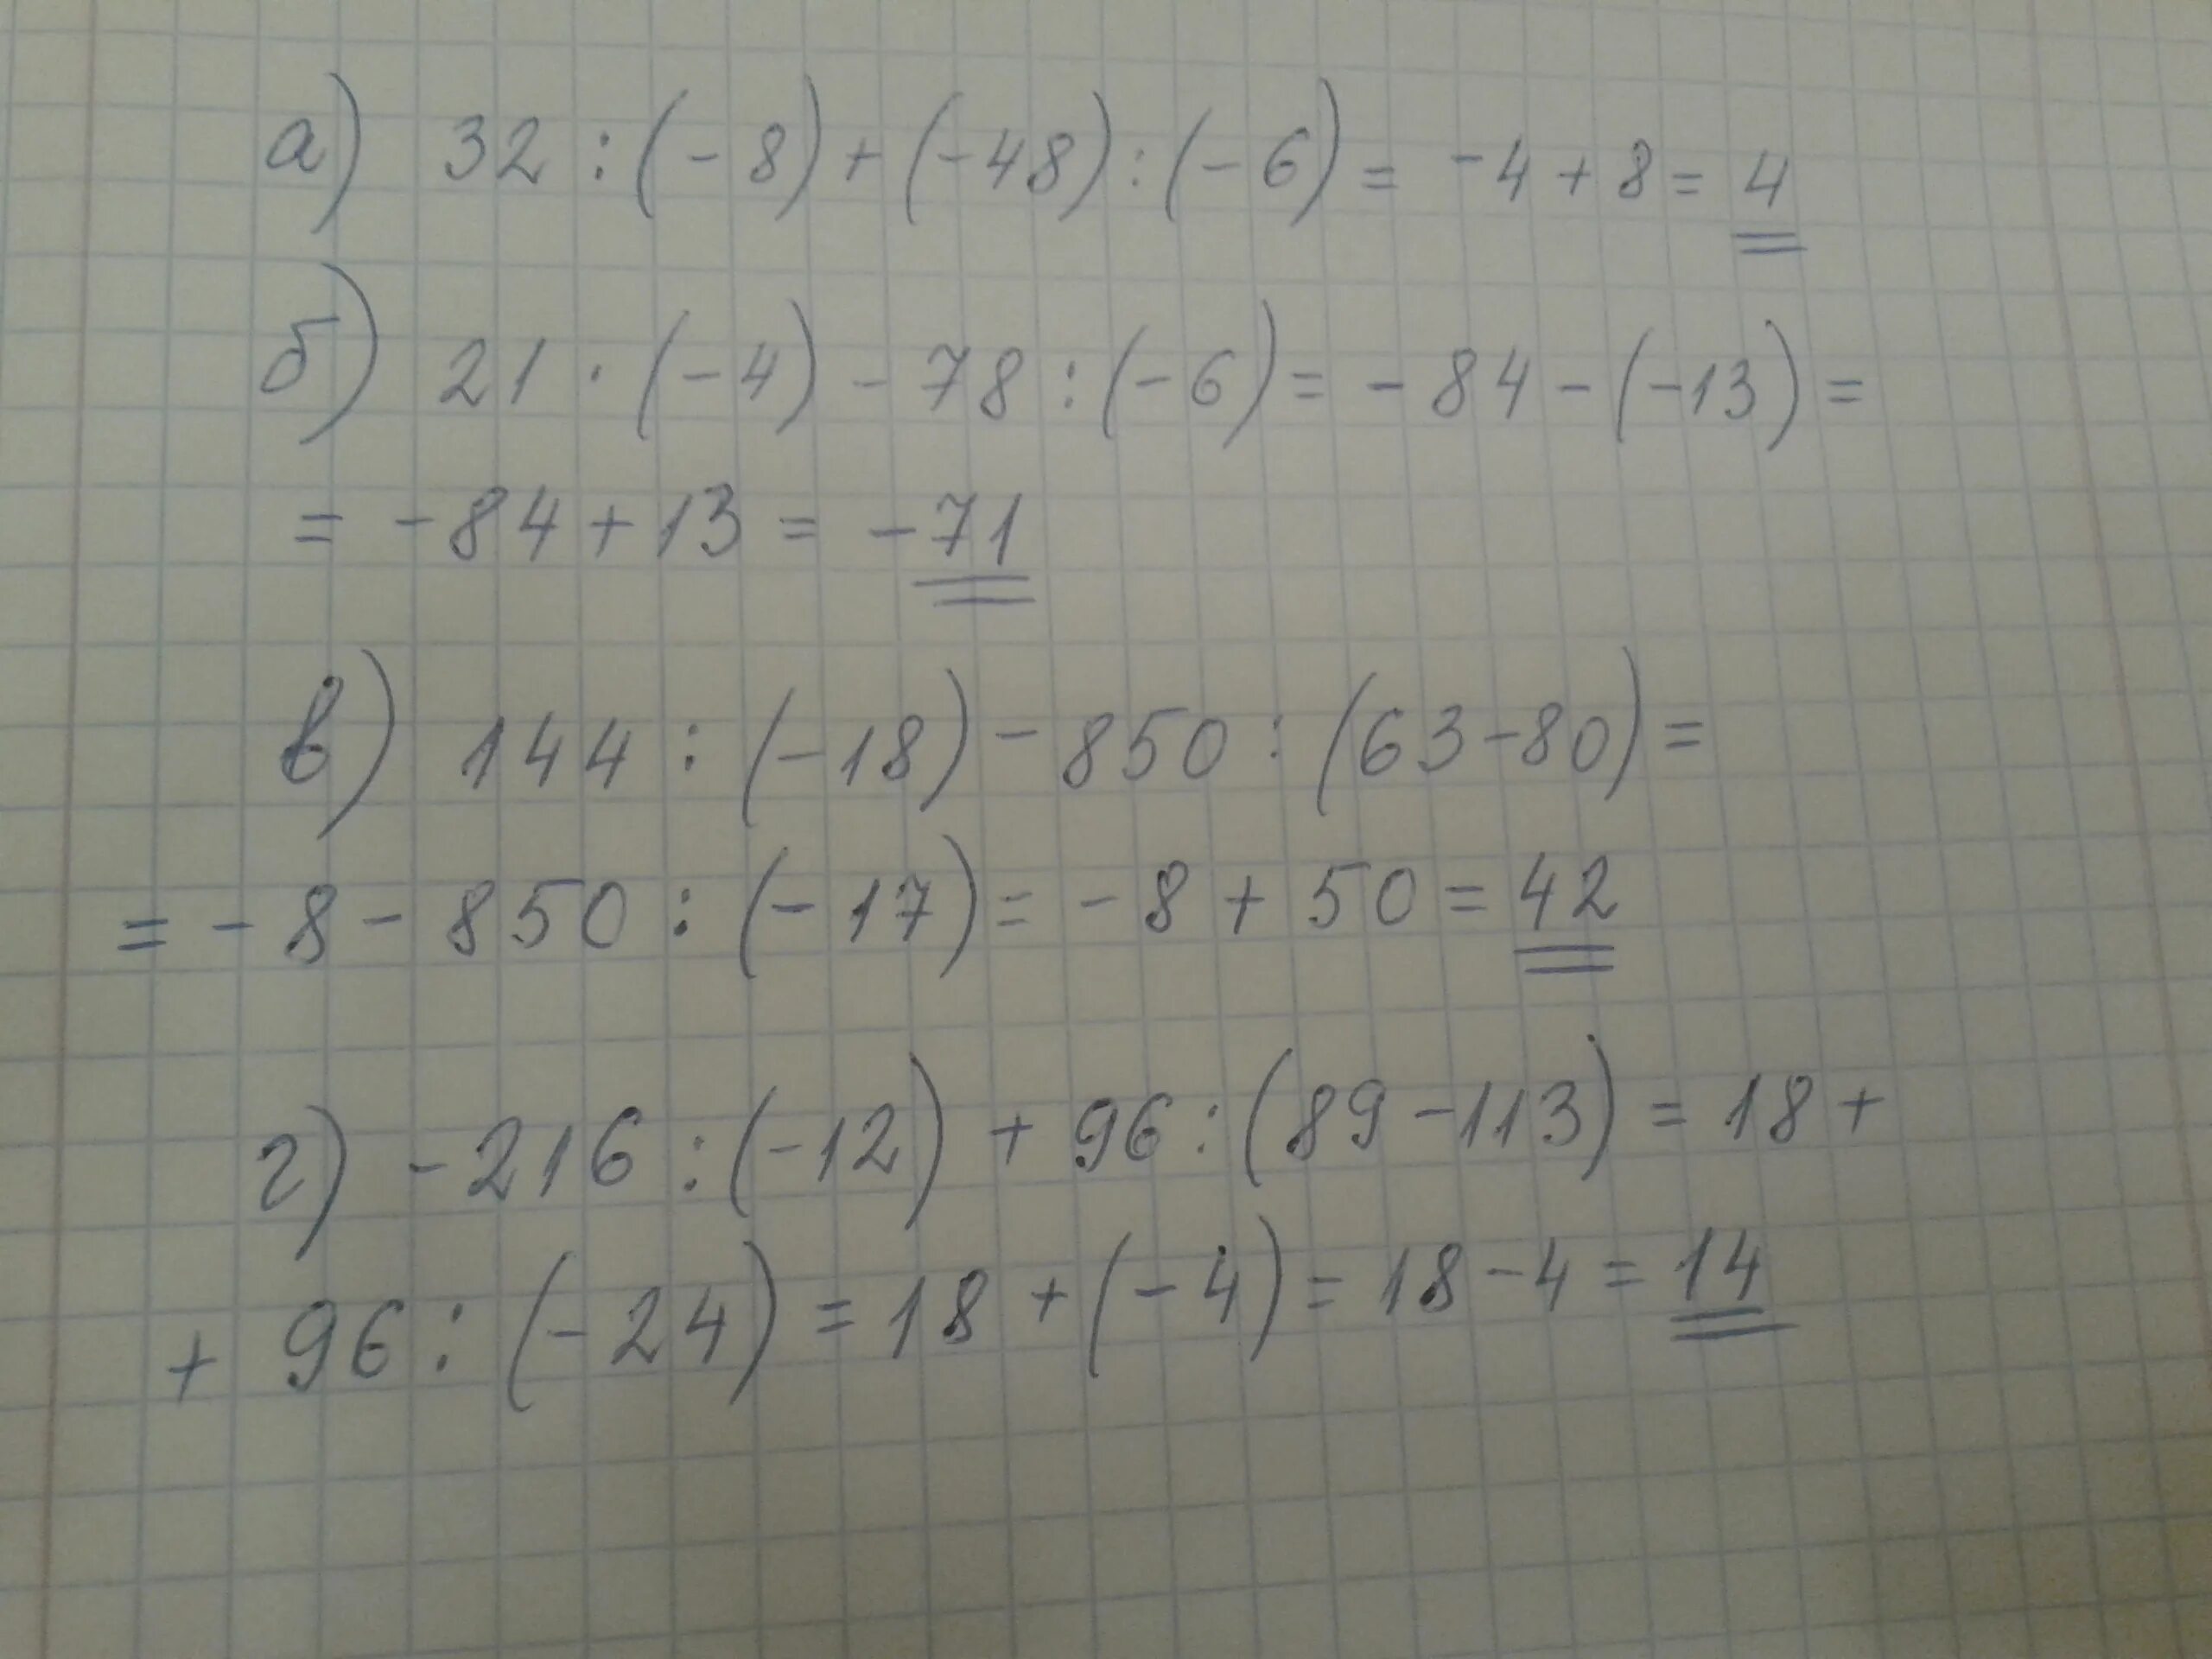 а) 32 : (-8) + (-48) : (-6) = -4 + 8 = 4
б) 21 · (-4) - 78 : (-6) = -84 - (-13) =
= -84 + 13 = -71
в) 144 : (-18) - 850 : (63-80) =
= -8 - 850 : (-17) = -8 + 50 = 42
г) -216 : (-12) + 96 : (89-113) = 18 +
+ 96 : (-24) = 18 + (-4) = 18 - 4 = 14